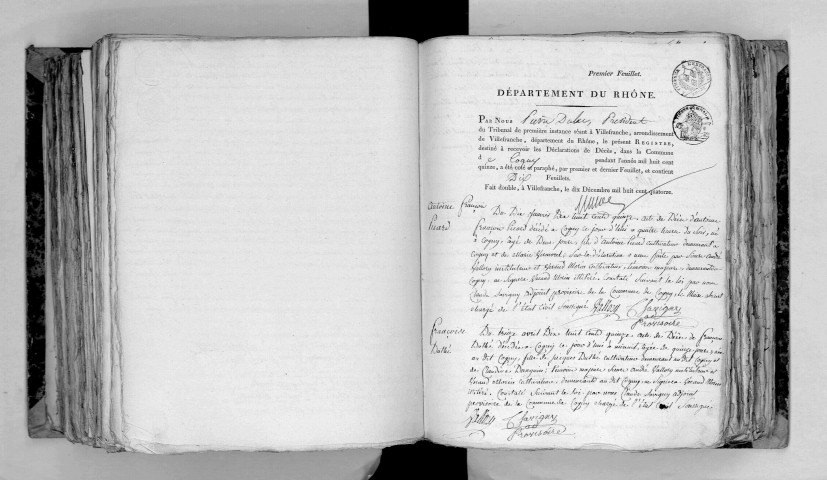 Premier Feuillet.
DÉPARTEMENT DU RHÔNE.
PAR NOUS Pierre Président
du Tribunal de première instance séant à Villefranche, arrondissement
de Villefranche, département du Rhône, le présent REGISTRE,
destiné à recevoir les Déclarations de Décès, dans la Commune
de Cogny pendant l'année mil huit cent
quinze, a été coté et paraphé, par premier et dernier Feuillet, et contient
Dix Feuillets.
Fait double, à Villefranche, le dix Décembre mil huit cent quatorze.
Antoine François
Picard
Du Dix Janvier Dix huit cent quinze, acte de Décès d'antoine
françois Picard décédé a Cogny ce jour d'hui a quatre heures du Soir, né
a Cogny, agé de Deux jours, fils d'antoine Picard cultivateur demeurant a
Cogny et de Marie Sur la déclaration a nous faite par Sieur andré
Vallosy instituteur et Morin cultivateur, témoins majeurs, demeurants
Cogny, Morin illitéré. Constaté Suivant la loi par nous
Claude Savigny adjoint provisoire de la Commune de Cogny, le Maire absent
chargé de l'état Civil Soussigné Savigny
Provisoire
françoise
Duthé
Du treize avril Dix huit cent quinze, acte de Décès de françoise
Duthé décédée a Cogny ce jour d'hui a minuit, agée de quinze jours, née
au dit Cogny, fille de Jacques Duthé cultivateur demeurant au dit Cogny et
de Claudine témoins majeurs Sieur andré Vallosy instituteur et
Morin cultivateur, demeurants au dit Cogny, Morin
illitéré. Constaté Suivant la loi par nous Claude Savigny adjoint
provisoire de la Commune de Cogny chargé de l'état Civil Soussigné
Savigny
Provisoire